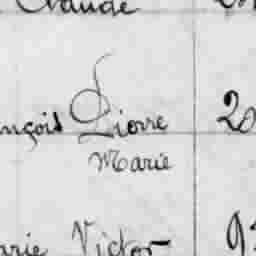 Claude
nçois Pierre 20
Marie
arie Victor 9